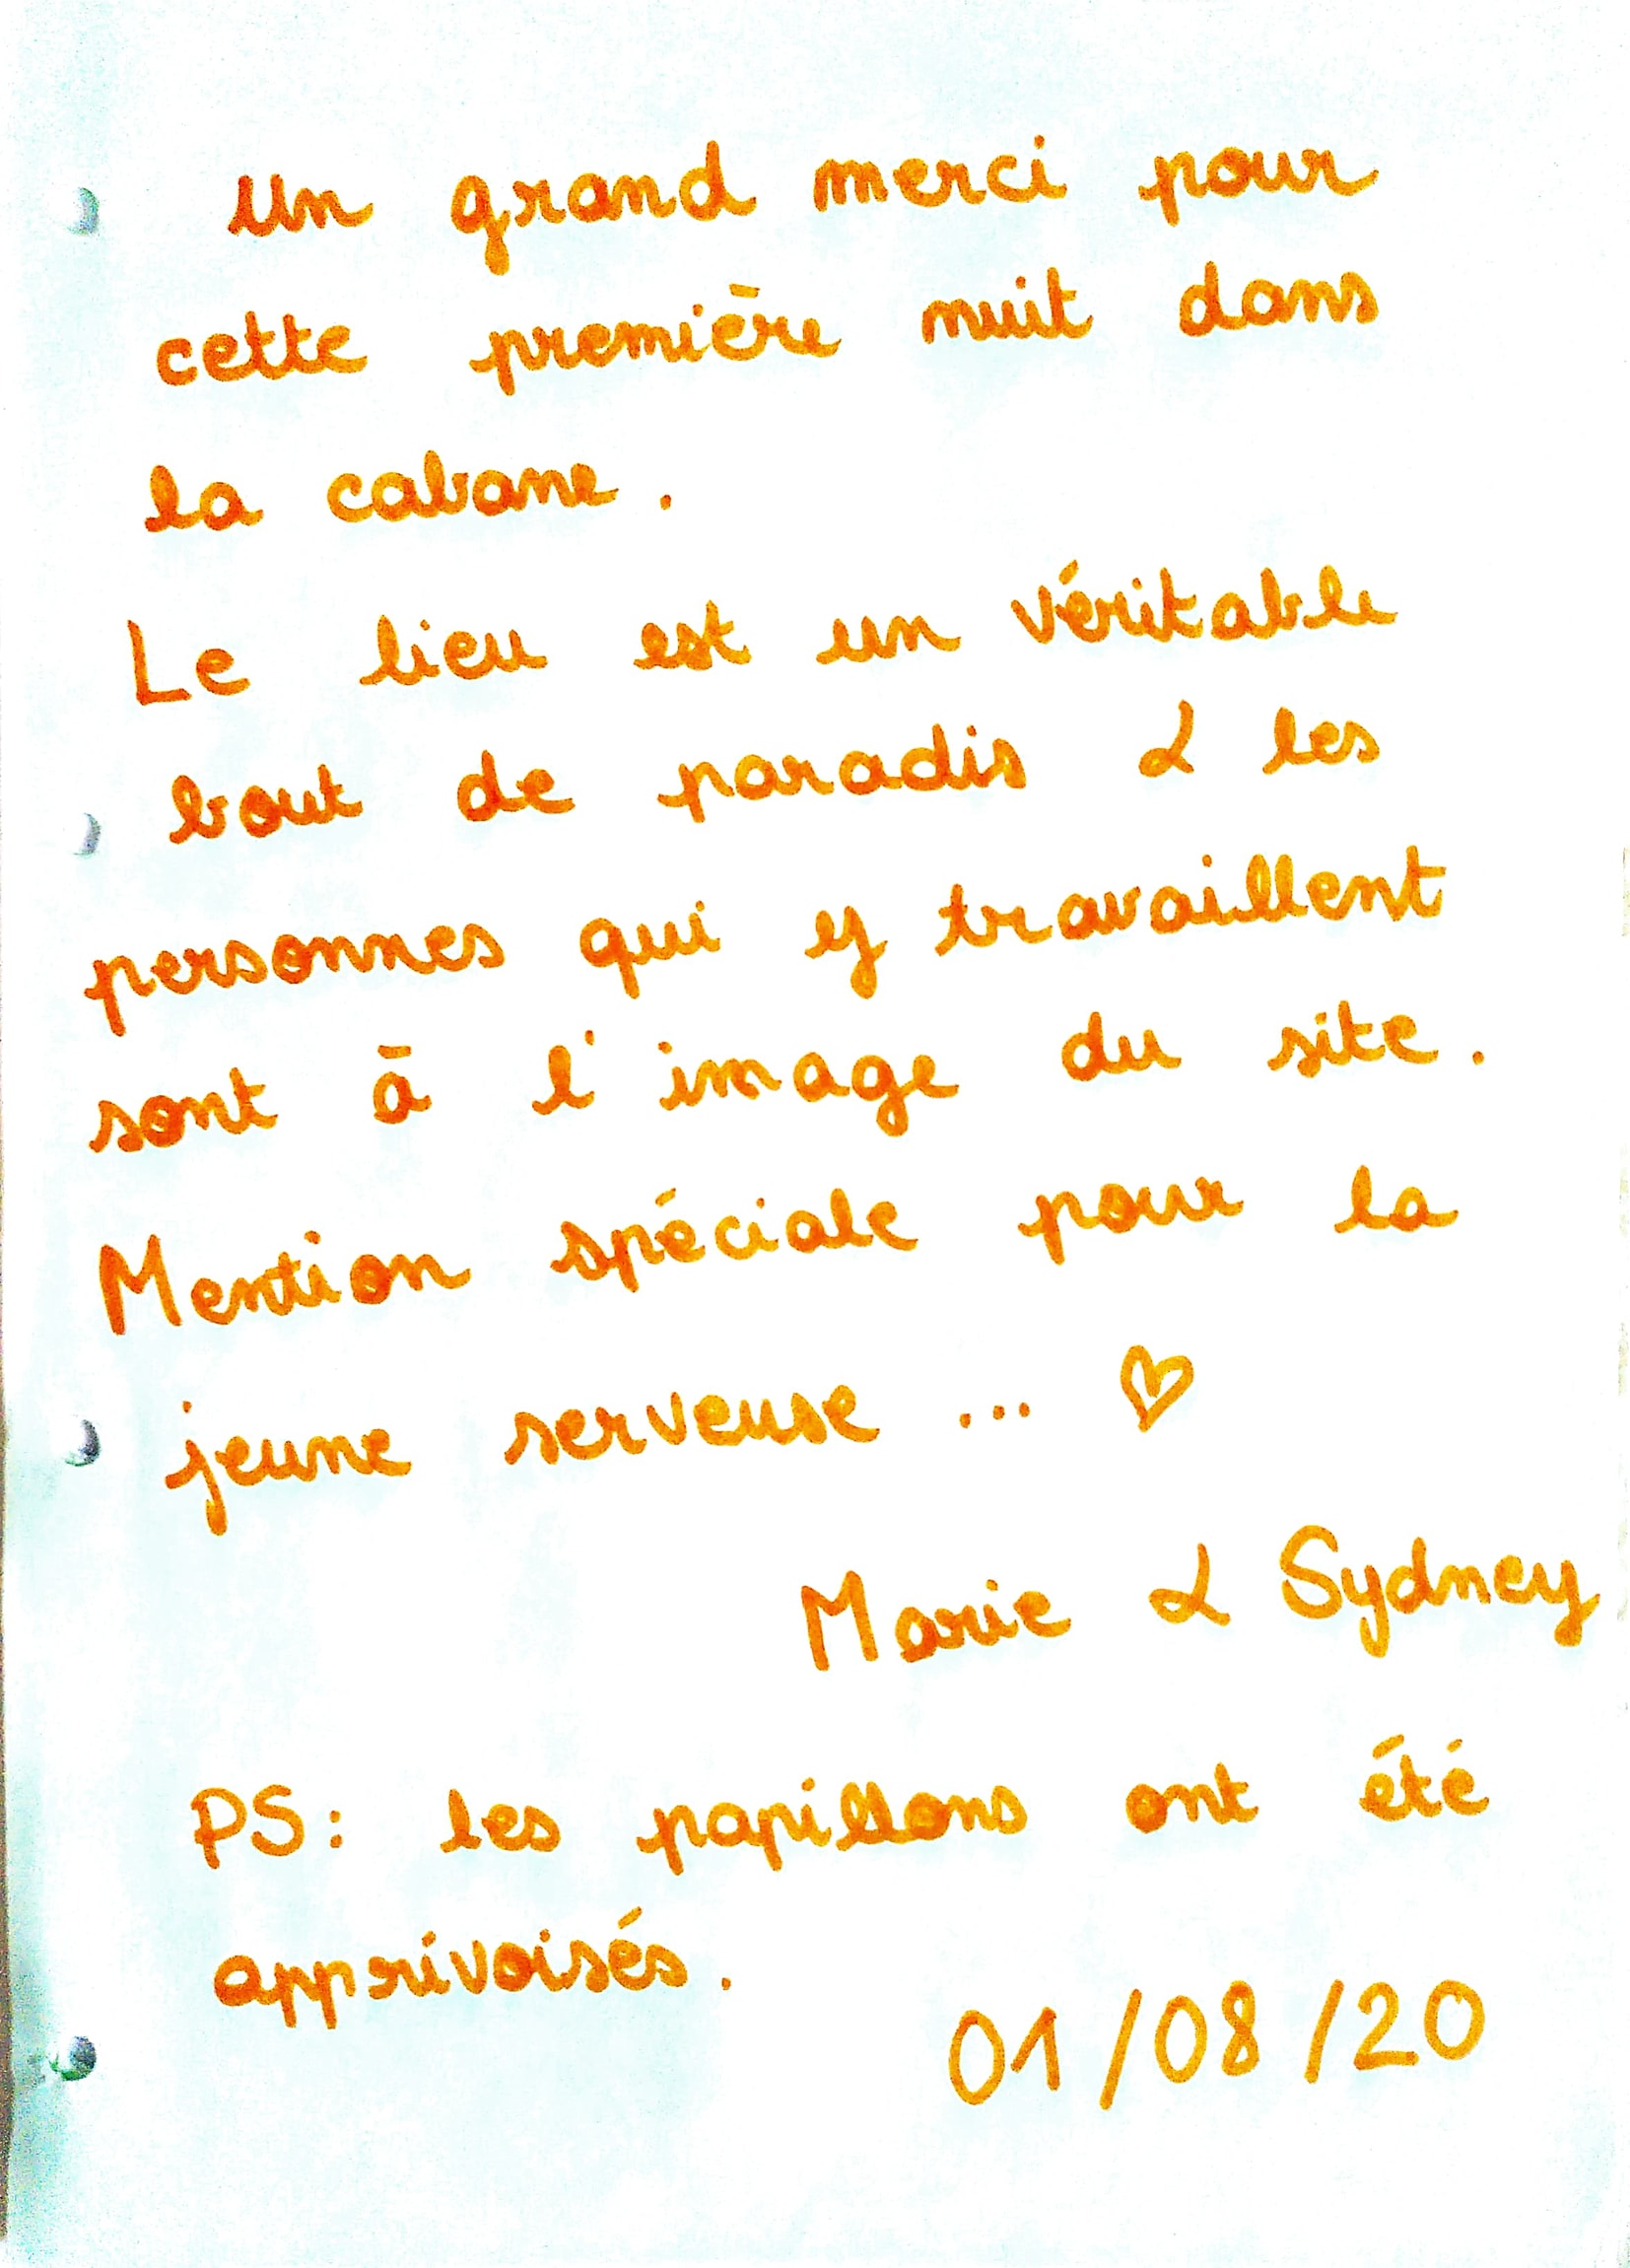 Un grand merci pour
cette première nuit dans
la cabane.
Le lieu est un véritable
bout de paradis & les
personnes qui y travaillent
sont à l'image du site.
Mention spéciale pour la
jeune serveuse ... ♡
Marie & Sydney
PS: les papillons ont été
apprivoisés.
01/08/20